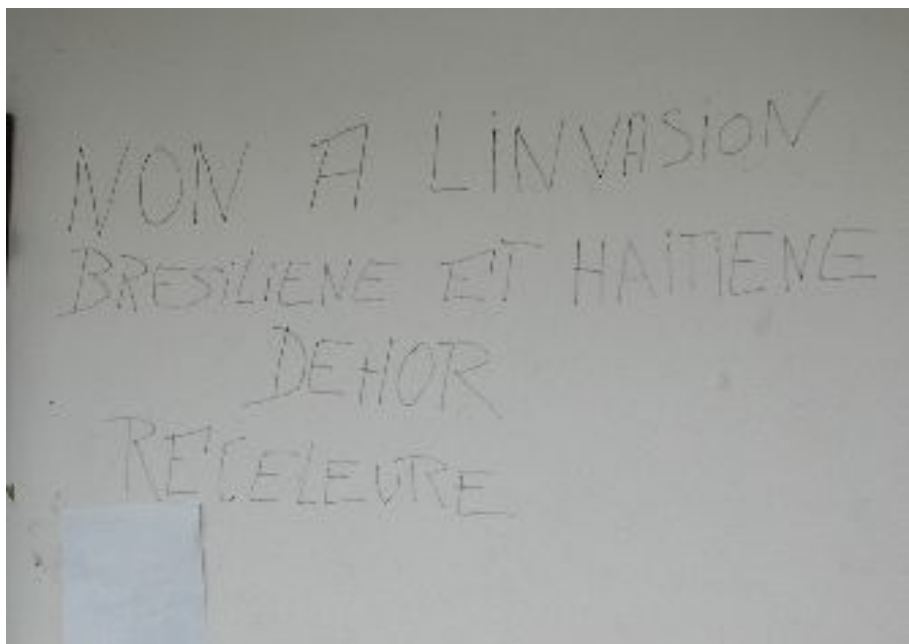 NON A LINVASION
BRESILIENE ET HAITIENE
DEHOR
RECELEURE